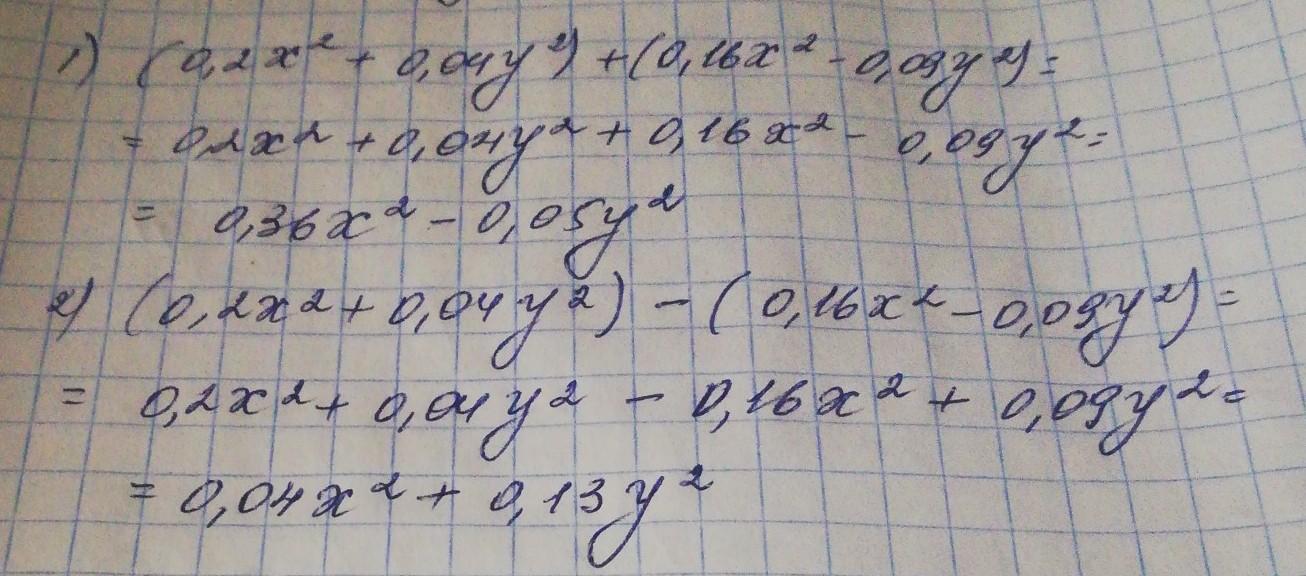 1) (0,2x² + 0,04y²) + (0,16x² - 0,09y²) =
= 0,2x² + 0,04y² + 0,16x² - 0,09y² =
= 0,36x² - 0,05y²
2) (0,2x² + 0,04y²) - (0,16x² - 0,09y²) =
= 0,2x² + 0,04y² - 0,16x² + 0,09y² =
= 0,04x² + 0,13y²